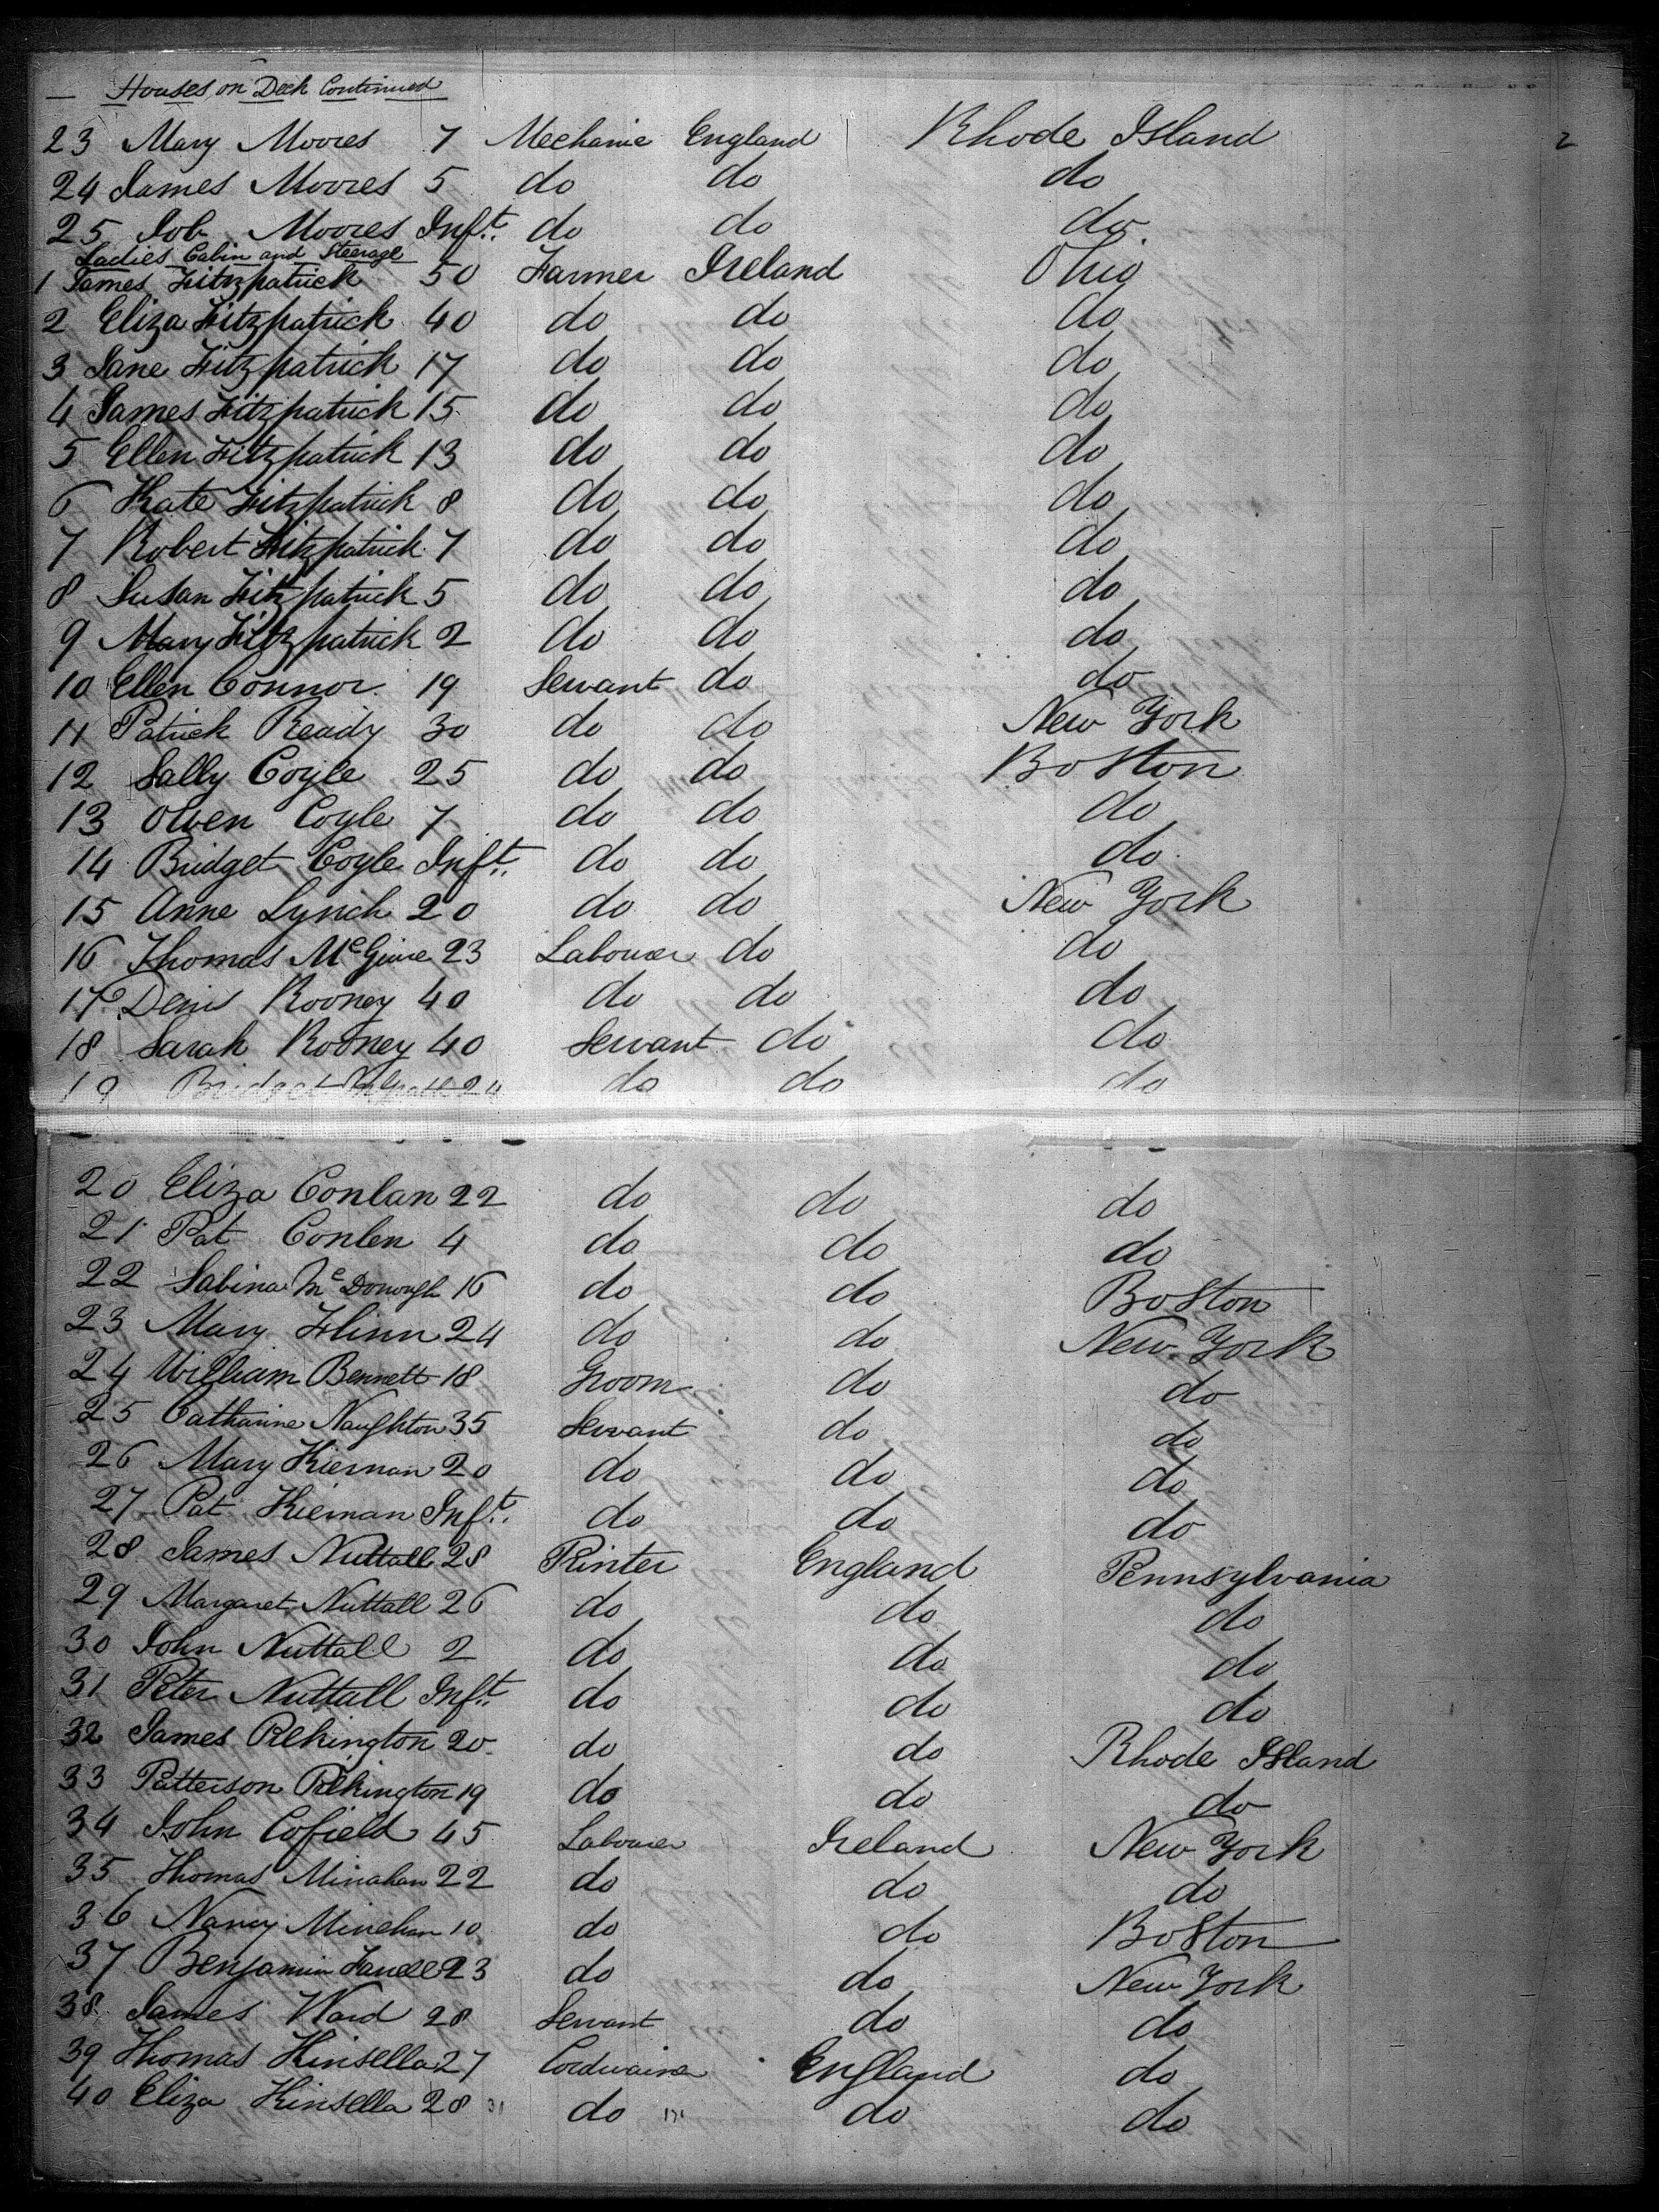 Houses on Deck Continued
23 Mary Moores 7 Mechanic England Rhode Island 2
24 James Moores 5 do do do
25 Job Moores Inft. do do do
Ladies Cabin and Steerage
1 James Fitzpatrick 50 Farmer Ireland Ohio
2 Eliza Fitzpatrick 40 do do do
3 Jane Fitzpatrick 17 do do do
4 James Fitzpatrick 15 do do do
5 Ellen Fitzpatrick 13 do do do
6 Kate Fitzpatrick 8 do do do
7 Robert Fitzpatrick 7 do do do
8 Susan Fitzpatrick 5 do do do
9 Mary Fitzpatrick 2 do do do
10 Ellen Connor 19 Servant do do
11 Patrick Ready 30 do do New York
12 Sally Coyle 25 do do Boston
13 Owen Coyle 7 do do do
14 Bridget Coyle Inft. do do do
15 Anne Lynch 20 do do New York
16 Thomas McGuire 23 Labourer do do
17 Denis Rooney 40 do do do
18 Sarah Rooney 40 Servant do do
19 Bridget 24 do do do
20 Eliza Conlan 22 do do do
21 Pat Conlen 4 do do do
22 Sabina McDonough 16 do do Boston
23 Mary Flinn 24 do do New York
24 William Bennett 18 Groom do do
25 Catharine Naughton 35 Servant do do
26 Mary Kiernan 20 do do do
27 Pat Kiernan Inft. do do do
28 James Nuttall 28 Printer England Pennsylvania
29 Margaret Nuttall 26 do do do
30 John Nuttall 2 do do do
31 Peter Nuttall Inft. do do do
32 James Pilkington 20 do do Rhode Island
33 Patterson Pilkington 19 do do do
34 John Cofield 45 Labourer Ireland New York
35 Thomas Minahan 22 do do do
36 Nancy Minehan 10 do do Boston
37 Benjamin 23 do do New York
38 James Ward 28 Servant do do
39 Thomas Kinsella 27 Cordwainer England do
40 Eliza Kinsella 28 do do do